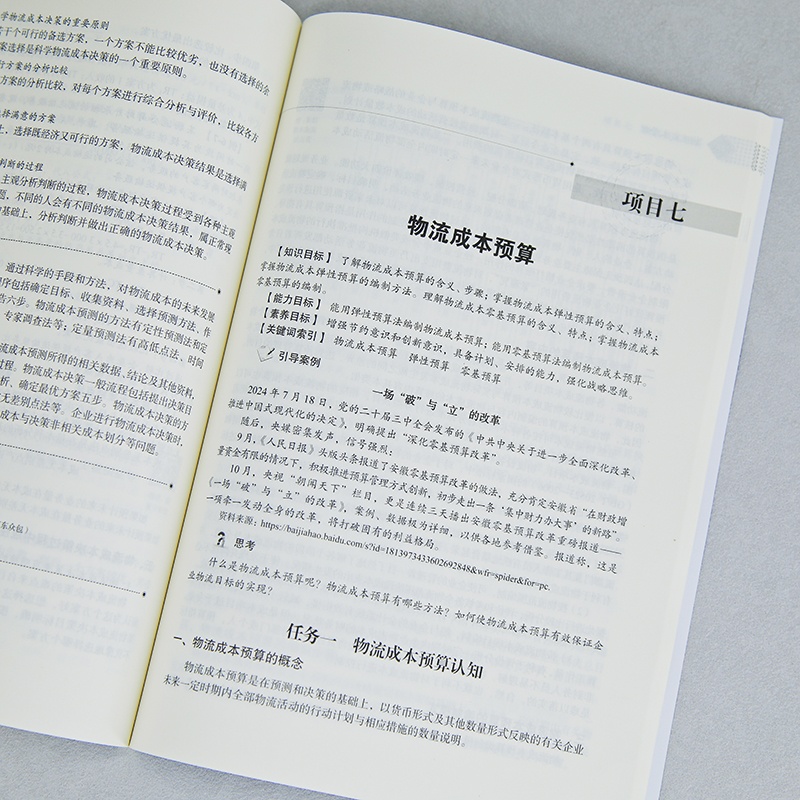 学物流成本决策的重要原则
若干个可行的备选方案，一个方案不能比较优劣，也没有选择的余
案选择是科学物流成本决策的一个重要原则。
行方案的分析比较
方案的分析比较，对每个方案进行综合分析与评价，比较各方
选择满意的方案
上，选择既经济又可行的方案，物流成本决策结果是选择满
判断的过程
主观分析判断的过程，物流成本决策过程受到各种主观
题，不同的人会有不同的物流成本决策结果，属正常现
的基础上，分析判断并做出正确的物流成本决策。
通过科学的手段和方法，对物流成本的未来发展
程序包括确定目标、收集资料、选择预测方法、作
告六步。物流成本预测的方法有定性预测法和定
、专家调查法等；定量预测法有高低点法、时间
流成本预测所得的相关数据、结论及其他资料，
过程。物流成本决策一般流程包括提出决策目
析、确定最优方案五步。物流成本决策的方
无差别点法等。企业进行物流成本决策时，
成本与决策非相关成本划分等问题。
东众包）
项目七
物流成本预算
【知识目标】 了解物流成本预算的含义、步骤；掌握物流成本弹性预算的含义、特点；
掌握物流成本弹性预算的编制方法。理解物流成本零基预算的含义、特点；掌握物流成本
零基预算的编制。
【能力目标】 能用弹性预算法编制物流成本预算；能用零基预算法编制物流成本预算。
【素养目标】 增强节约意识和创新意识，具备计划、安排的能力，强化战略思维。
【关键词索引】 物流成本预算 弹性预算 零基预算
引导案例
一场“破”与“立”的改革
2024 年 7 月 18 日，党的二十届三中全会发布的《中共中央关于进一步全面深化改革、
推进中国式现代化的决定》，明确提出“深化零基预算改革”。
随后，央媒密集发声，信号强烈：
9 月，《人民日报》头版头条报道了安徽零基预算改革的做法，充分肯定安徽省“在财政增
量资金有限的情况下，积极推进预算管理方式创新，初步走出一条‘集中财力办大事’的新路”。
10 月，央视“朝闻天下”栏目，更是连续三天播出安徽零基预算改革重磅报道——
《一场“破”与“立”的改革》，案例、数据极为详细，以供各地参考借鉴。报道称，这是
一项牵一发动全身的改革，将打破固有的利益格局。
资料来源：https://baijiahao.baidu.com/s?id=1813973433602692848&wfr=spider&for=pc.
思考
什么是物流成本预算呢？物流成本预算有哪些方法？如何使物流成本预算有效保证企
业物流目标的实现？
任务一 物流成本预算认知
一、物流成本预算的概念
物流成本预算是在预测和决策的基础上，以货币形式及其他数量形式反映的有关企业
未来一定时期内全部物流活动的行动计划与相应措施的数量说明。